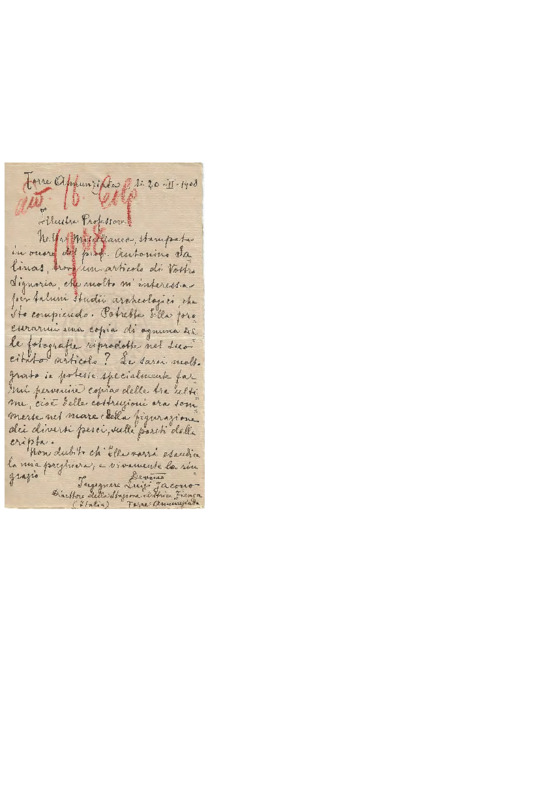 Torre Annunziata li 20-II-1908
16
1908
Illustre Professore
Nella Miscellanea, stampata
in onore del prof. Antonino Sa
linas, trovo un articolo di Vostra
Signoria, che molto m'interessa
per taluni studii archeologici che
sto compiendo. Potrebbe Ella pro
curarmi una copia di ognuna del
le fotografie riprodotte nel suo
citato articolo? Le sarei molto
grato se potesse specialmente far
mi pervenire copia delle tre ulti
me, cioè delle costruzioni ora som
merse nel mare e della figurazione
dei diversi pesci, sulle pareti della
cripta.
Non dubito ch'Ella vorrà esaudire
la mia preghiera, e vivamente la rin
grazio
Devmo
Ingegnere Luigi Jacono
Direttore della Stazione elettrica
(Italia) Torre Annunziata